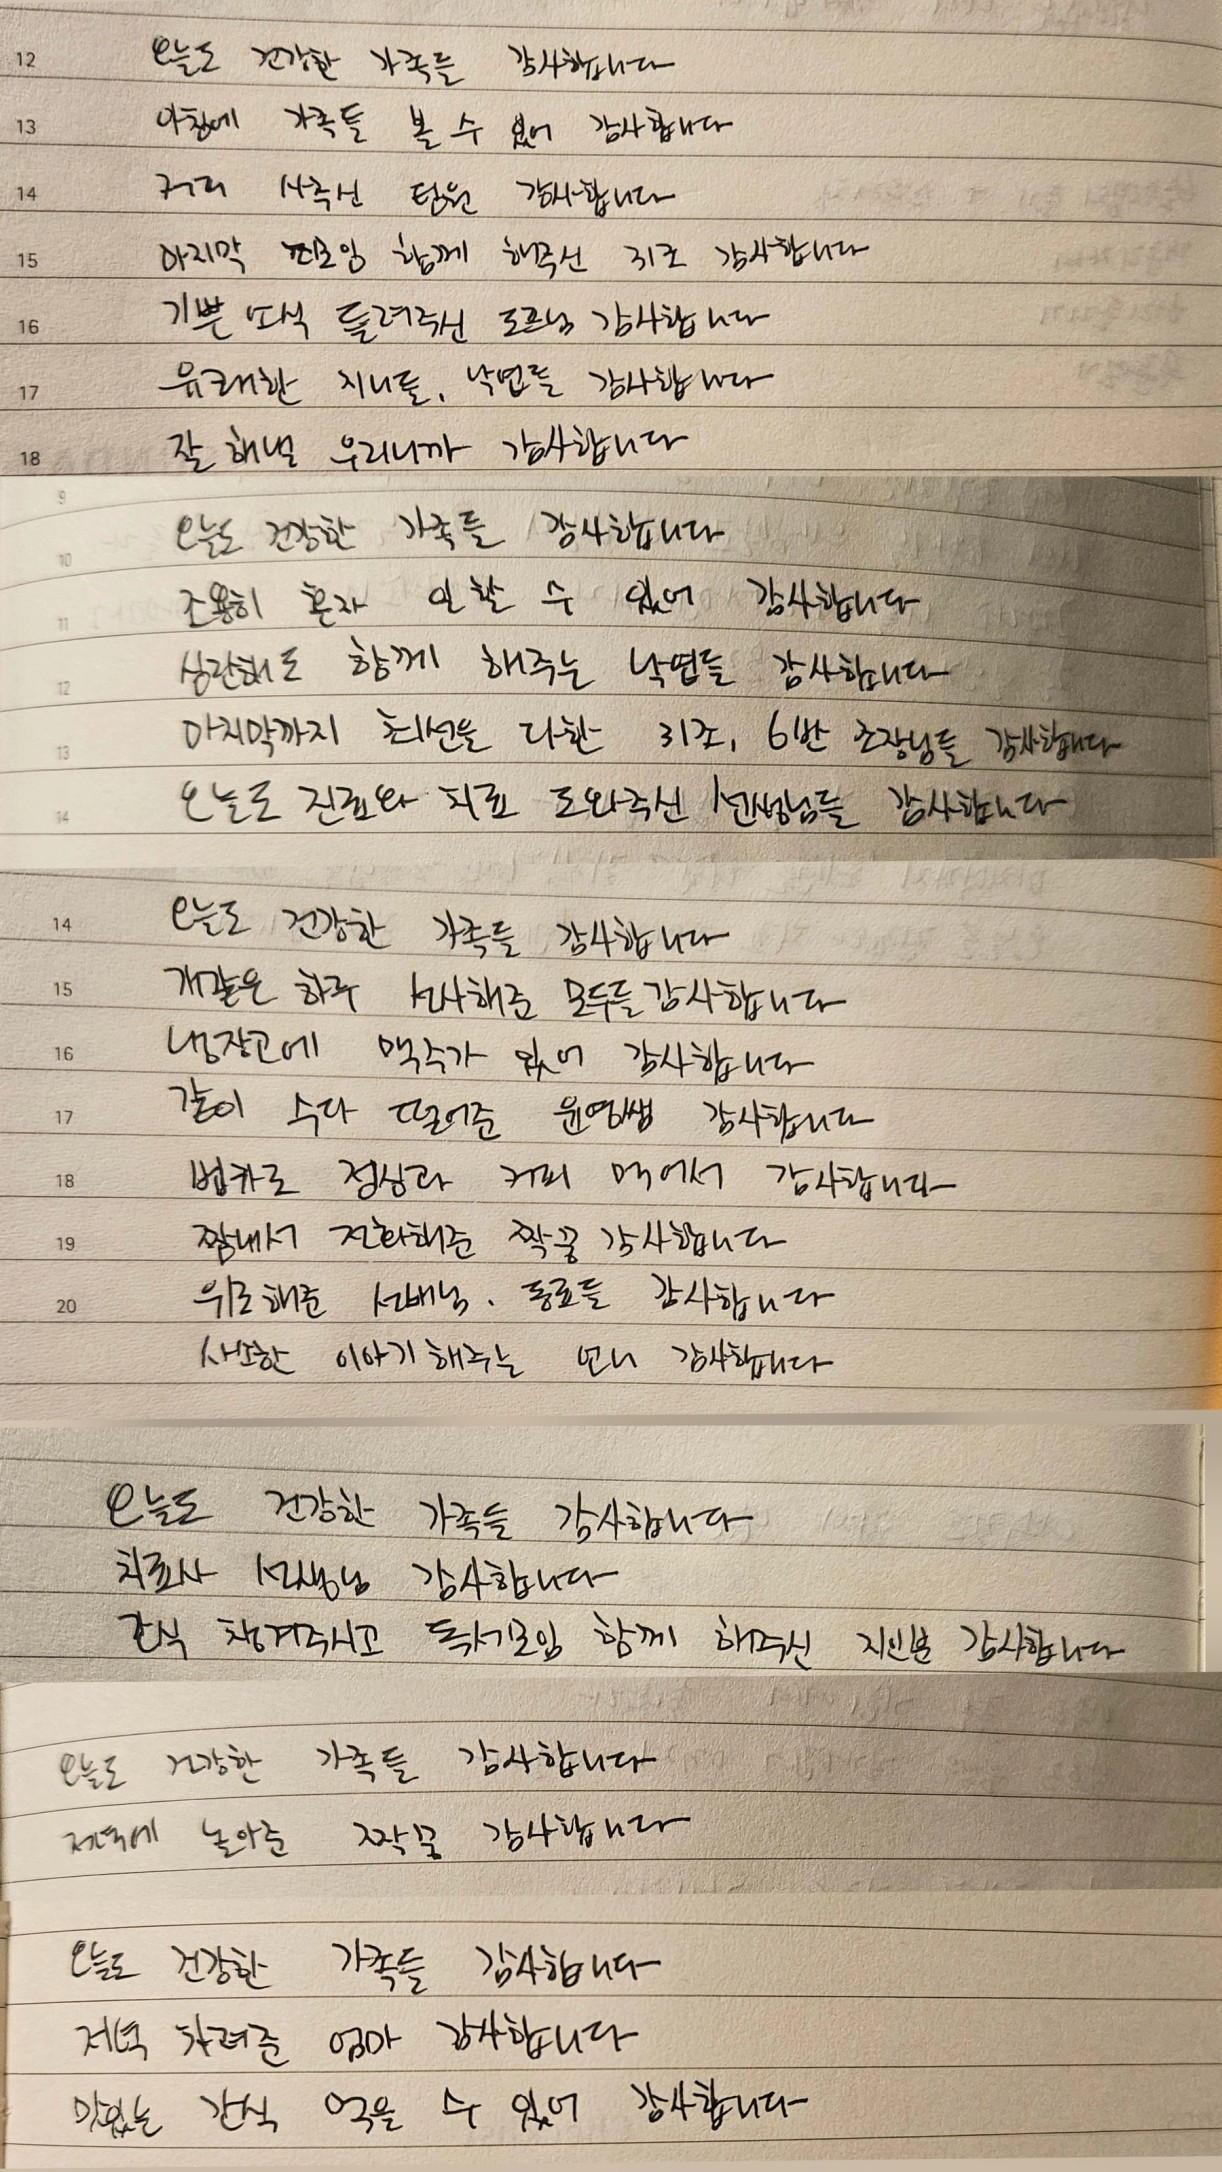 12 오늘도 건강한 가족들 감사합니다
13 아침에 가족들 볼 수 있어 감사합니다
14 커피 사주신 팀원 감사합니다
15 마지막 찐모임 함께 해주신 31조 감사합니다
16 기쁜 소식 들려주신 도프님 감사합니다
17 유쾌한 지니들, 낙엽들 감사합니다
18 잘 해낼 우리니까 감사합니다
9 오늘도 건강한 가족들 감사합니다
10
11 조용히 혼자 일 할 수 있어 감사합니다
12 심란해도 함께 해주는 낙엽들 감사합니다
13 마지막까지 최선을 다한 31조, 6반 조장님들 감사합니다
14 오늘도 진료와 치료 도와주신 선생님들 감사합니다
14 오늘도 건강한 가족들 감사합니다
15 개같은 하루 선사해준 모두들 감사합니다
16 냉장고에 맥주가 있어 감사합니다
17 같이 수다 떨어준 윤영쌤 감사합니다
18 법카로 점심과 커피 먹어서 감사합니다
19 짬내서 전화해준 짝꿍 감사합니다
20 위로해준 선배님, 동료들 감사합니다
사소한 이야기 해주는 언니 감사합니다
오늘도 건강한 가족들 감사합니다
치료사 선생님 감사합니다
간식 챙겨주시고 독서모임 함께 해주신 지인분 감사합니다
오늘도 건강한 가족들 감사합니다
저녁에 놀아준 짝꿍 감사합니다
오늘도 건강한 가족들 감사합니다
저녁 차려준 엄마 감사합니다
맛있는 간식 먹을 수 있어 감사합니다